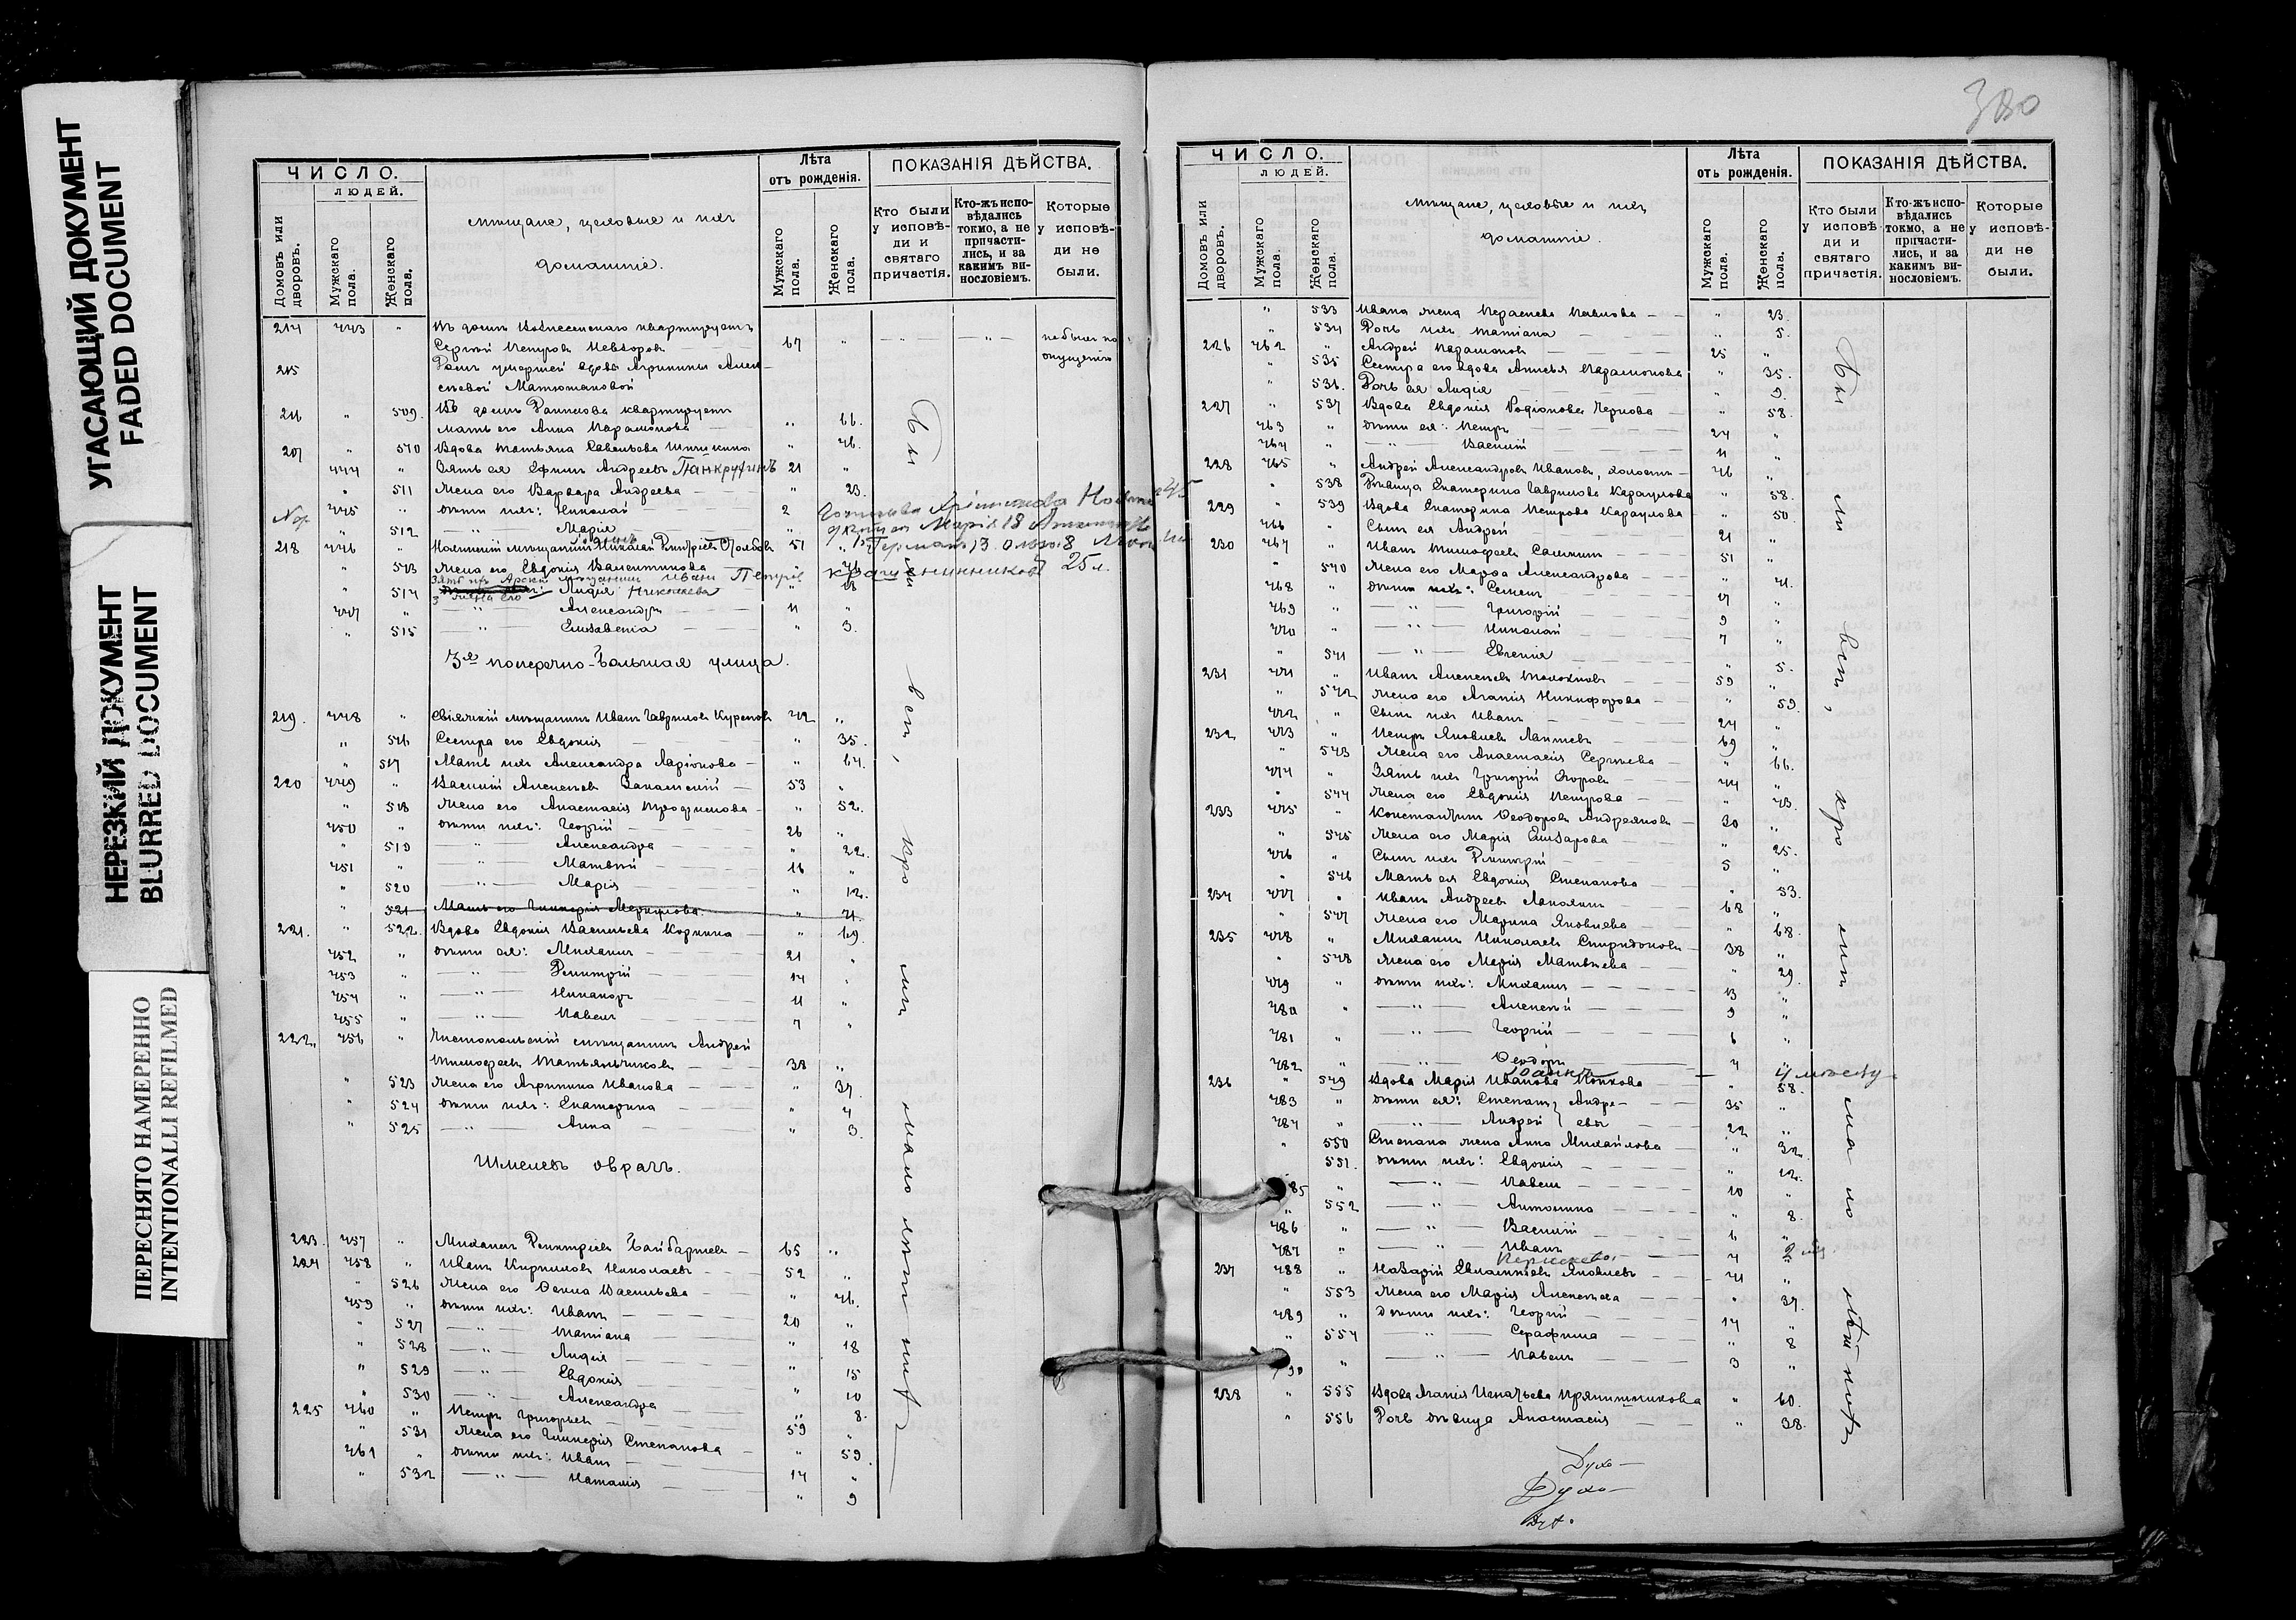 УГАСАЮЩИЙ ДОКУМЕНТ
FADED DOCUMENT
НЕРЕЗКИЙ ДОКУМЕНТ
BLURRED DOCUMENT
ПЕРЕСНЯТО НАМЕРЕННО
INTENTIONALLI REFILMED
ЧИСЛО.
ЛЮДЕЙ.
Домовъ или дворовъ.
Мужскаго пола.
Женскаго пола.
мѣщане, цеховые и ихъ
домашніе.
Лѣта
отъ рожденія.
Мужскаго пола.
Женскаго пола.
ПОКАЗАНІЯ ДѢЙСТВА.
Кто были у исповѣди и святаго причастія.
Кто-жъ исповѣдались токмо, а не причастились, и за какимъ винословіемъ.
Которые у исповѣди не были.
214 443 " Въ домѣ Вознесенскаго квартируетъ
Сергѣй Петровъ 67 " — " — — " — не были по
опущенію
215 Домъ умершей вдовы Агрипины Алек-
сѣевой Матюшановой
" 509. Въ домѣ квартируетъ
мать его Анна Парамонова — " 66.
" 510 Вдова Татьяна Савельева " 46.
444 " Зять ея Ефимъ Андреевъ Панкрухинъ 21 "
" 511 Жена его Варвара Андреева — " 23.
445 " дѣти ихъ: Николай 2
" 512 — " — Марія
218 446 " мѣщанинъ Николай Дмитріевъ 51 "
" 513 Жена его Евдокія Валентинова " 46
" 514 Жена его Лидія Николаева " 18
447 " — " — Александръ 11 "
" 515 — " — Елизавета — " 3.
3я поперечно-Большая улица.
219. 448 " Свіяжскій мѣщанинъ Иванъ Гавриловъ Куреповъ 42 "
" 516 Сестра его Евдокія — " 35.
" 517 Мать ихъ Александра Ларіонова — " 64.
220 449 " Василій Алексѣевъ Закамскій — 53 "
" 518 Жена его Анастасія Трофимова — " 52.
450 " дѣти ихъ: Георгій — 26 "
" 519 — " — Александра — " 22.
451 " — " — Матвѣй — 16 "
" 520 — " — Марія — " 12.
" 521 Мать его Гликерія Меркулова. " 71.
221. " 522. Вдова Евдокія Васильева Корнина — " 69.
452 " дѣти ея: Михаилъ — 21 "
453 " — " — Димитрій — 14 "
454 " — " — Никаноръ — 11 "
455 " — " — Павелъ — 7 "
222. 456 " Чистопольскій мѣщанинъ Андрей
Тимофеевъ Татьянчиковъ — 38 "
" 523 Жена его Агрипина Иванова — " 37.
" 524 дѣти ихъ: Екатерина — " 4
" 525 — " — Анна — " 3.
Шмелевъ оврагъ.
223. 457 " Михаилъ Димитріевъ Байбарышевъ — 65 "
224 458 " Иванъ Кирилловъ Николаевъ — 52 "
" 526 Жена его Ѳекла Васильева — " 46.
459 " дѣти ихъ: Иванъ — 20 "
" 527 — " — Татіана — " 18
" 528 — " — Лидія — " 15
" 529 — " — Евдокія — " 10
" 530 — " — Александра — " 8.
225 460 " Петръ Григорьевъ — 59 "
" 531 Жена его Гликерія Степанова — " 59.
461 " дѣти ихъ: Иванъ — 14 "
" 532 — " — Наталія — " 9
Были всѣ, кромѣ малолѣтнихъ
380
ЧИСЛО.
ЛЮДЕЙ.
Домовъ или дворовъ.
Мужскаго пола.
Женскаго пола.
мѣщане, цеховые и ихъ
домашніе.
Лѣта
отъ рожденія.
Мужскаго пола.
Женскаго пола.
ПОКАЗАНІЯ ДѢЙСТВА.
Кто были у исповѣди и святаго причастія.
Кто-жъ исповѣдались токмо, а не причастились, и за какимъ винословіемъ.
Которые у исповѣди не были.
" 533 Ивана жена Павлова — " 23.
" 534 Дочь ихъ Татіана — " 5.
226 462 " Андрей Парамоновъ — 25 "
" 535 Сестра его вдова Анисья Парамонова " 35.
" 536. Дочь ея Лидія — " 9.
227 " 537 Вдова Евдокія Родіонова Чернова — " 58.
463 " дѣти ея: Петръ — 24 "
464 " — " — Василій 11 "
228 465 " Андрей Александровъ Ивановъ, холостъ — 46 "
" 538 Дѣвица Екатерина Гаврилова Караулова " 58.
229 " 539 Вдова Екатерина Петрова Караулова — " 50.
466 " Сынъ ея Андрей 21 "
230 467 " Иванъ Тимофеевъ — 51 "
" 540 Жена его Марѳа Александрова — " 41.
468 " дѣти ихъ: Семенъ — 17 "
469 " — " — Григорій — 9 "
470 " — " — Николай — 7 "
" 541 — " — Евгенія — " 5.
231 471 " Иванъ Алексѣевъ Молоховъ — 59 "
" 542 Жена его Агапія Никифорова — " 59.
472 " Сынъ ихъ Иванъ — 24 "
232 473 " Петръ Яковлевъ Лаптевъ — 69 "
" 543 Жена его Анастасія Сергѣева — " 66.
474 " Зять ихъ Григорій Егоровъ — 44 "
" 544 Жена его Евдокія Петрова — " 43.
233 475 " Константинъ Ѳеодоровъ Андреяновъ — 30 "
" 545 Жена его Марія Елизарова — " 25.
476 " Сынъ ихъ Димитрій — 5 "
" 546 Мать ея Евдокія Степанова — " 53.
234 477 " Иванъ Андреевъ — 68 "
" 547 Жена его Марина Яковлева — " 68.
235 478 " Михаилъ Николаевъ Спиридоновъ — 38 "
" 548 Жена его Марія Матвѣева — " 29.
479 " дѣти ихъ: Михаилъ — 13 "
480 " — " — Алексѣй — 9 "
481 " — " — Георгій — 6 "
482 " — " — Ѳеодоръ — 4 "
236 " 549 Вдова Марія Иванова — " 58.
483 " дѣти ея: Степанъ } Андре- — 35 "
484 " — " — Андрей } евы — 22 "
" 550 Степана жена Анна Михайлова — " 32.
" 551. дѣти ихъ: Евдокія — " 12.
85 " — " — Павелъ — 10 "
" 552 — " — Антонина — " 8.
486 " — " — Василій — 6 "
487 " — " — Иванъ — 4 "
237 488 " Назарій Евлампіевъ Яковлевъ — 41 "
" 553 Жена его Марія Алексѣева — " 37.
489 " дѣти ихъ: Георгій — 14 "
" 554 — " — Серафима — " 8
90 " — " — Павелъ — 3 "
238 " 555 Вдова Агапія Игнатьева Прянишникова " 60.
" 556 Дочь дѣвица Анастасія — " 38.
Были всѣ, кромѣ малолѣтнихъ
Духо-
Духо-